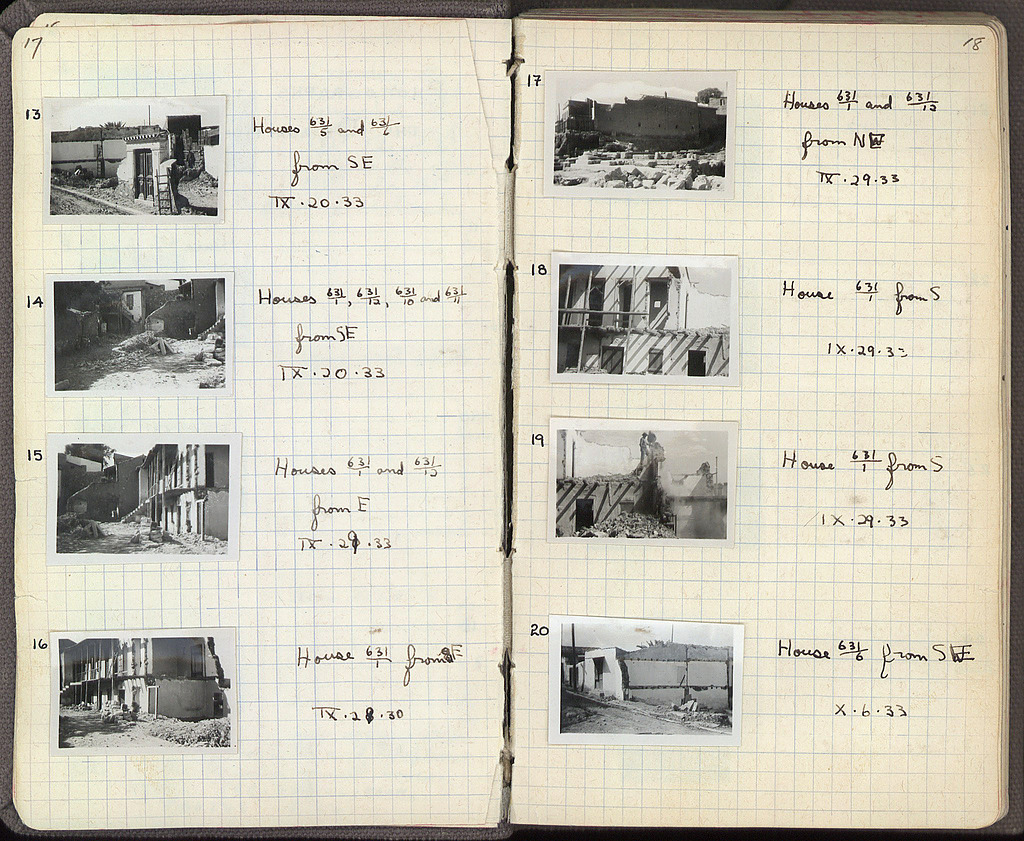 17
13
Houses 631/5 and 631/6
from SE
IX·20·33
14
Houses 631/1, 631/12, 631/10 and 631/11
from SE
IX·20·33
15
Houses 631/1 and 631/12
from E
IX·29·33
16
House 631/1 from E
IX·28·30
18
17
Houses 631/1 and 631/12
from N
IX·29·33
18
House 631/1 from S
IX·29·33
19
House 631/1 from S
IX·29·33
20
House 631/6 from S
X·6·33